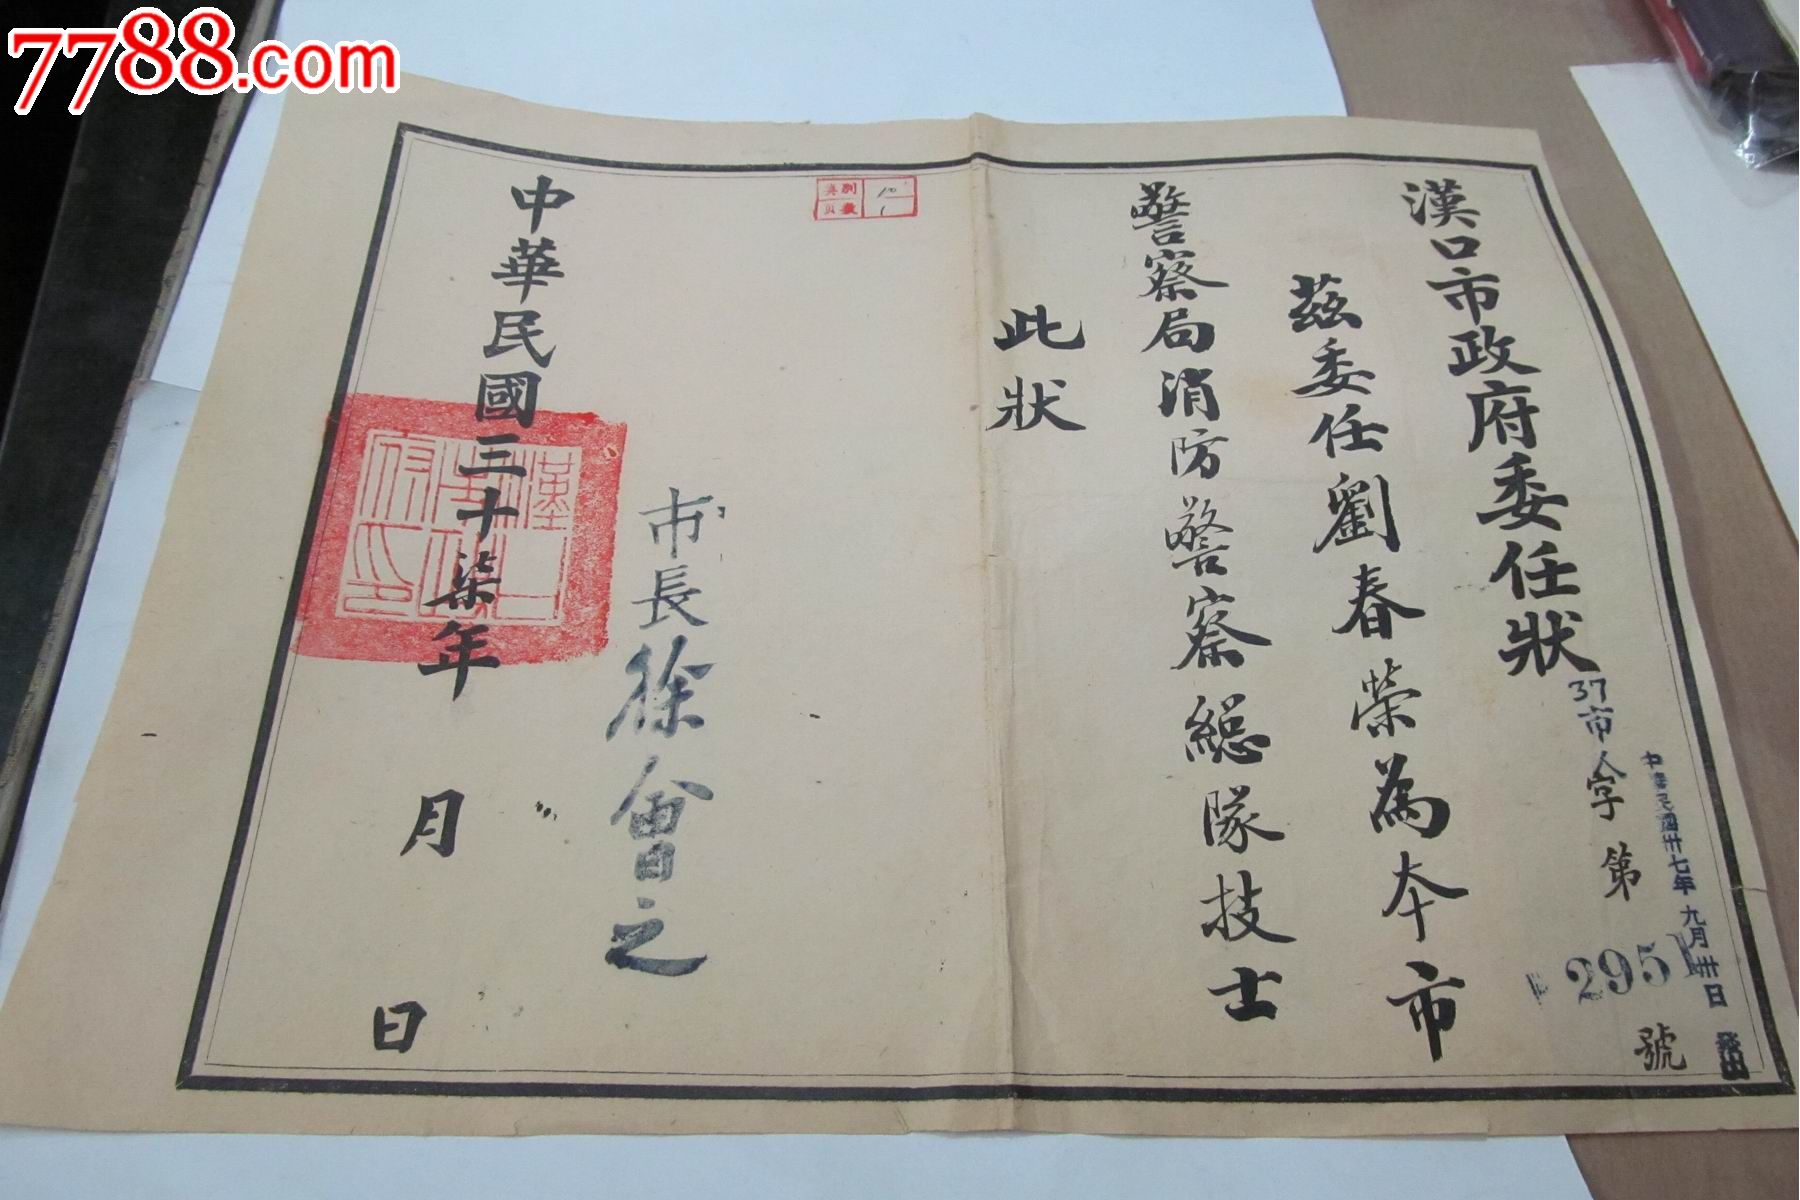 7788.com
漢口市政府委任狀
37市人字第295號
中華民國卅七年九月卅日發出
茲委任劉春榮為本市
警察局消防警察總隊技士
此狀
10
1
市長徐會之
中華民國三十柒年 月 日
漢口市政府印